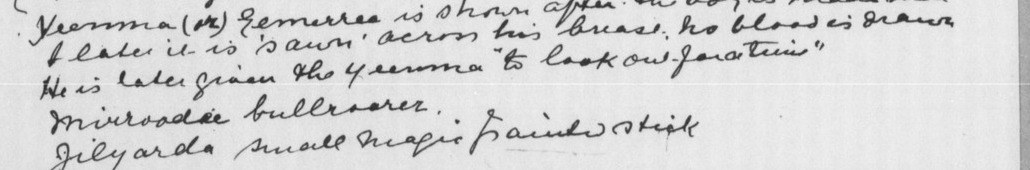 Yeenma (or) Gemerree is shown after
& later it is 'sawn' across his breast. No blood is drawn
He is later given the Yeenma "to look out for a time"
Mirroodee bullroarer.
Jilyarda small magic painted stick